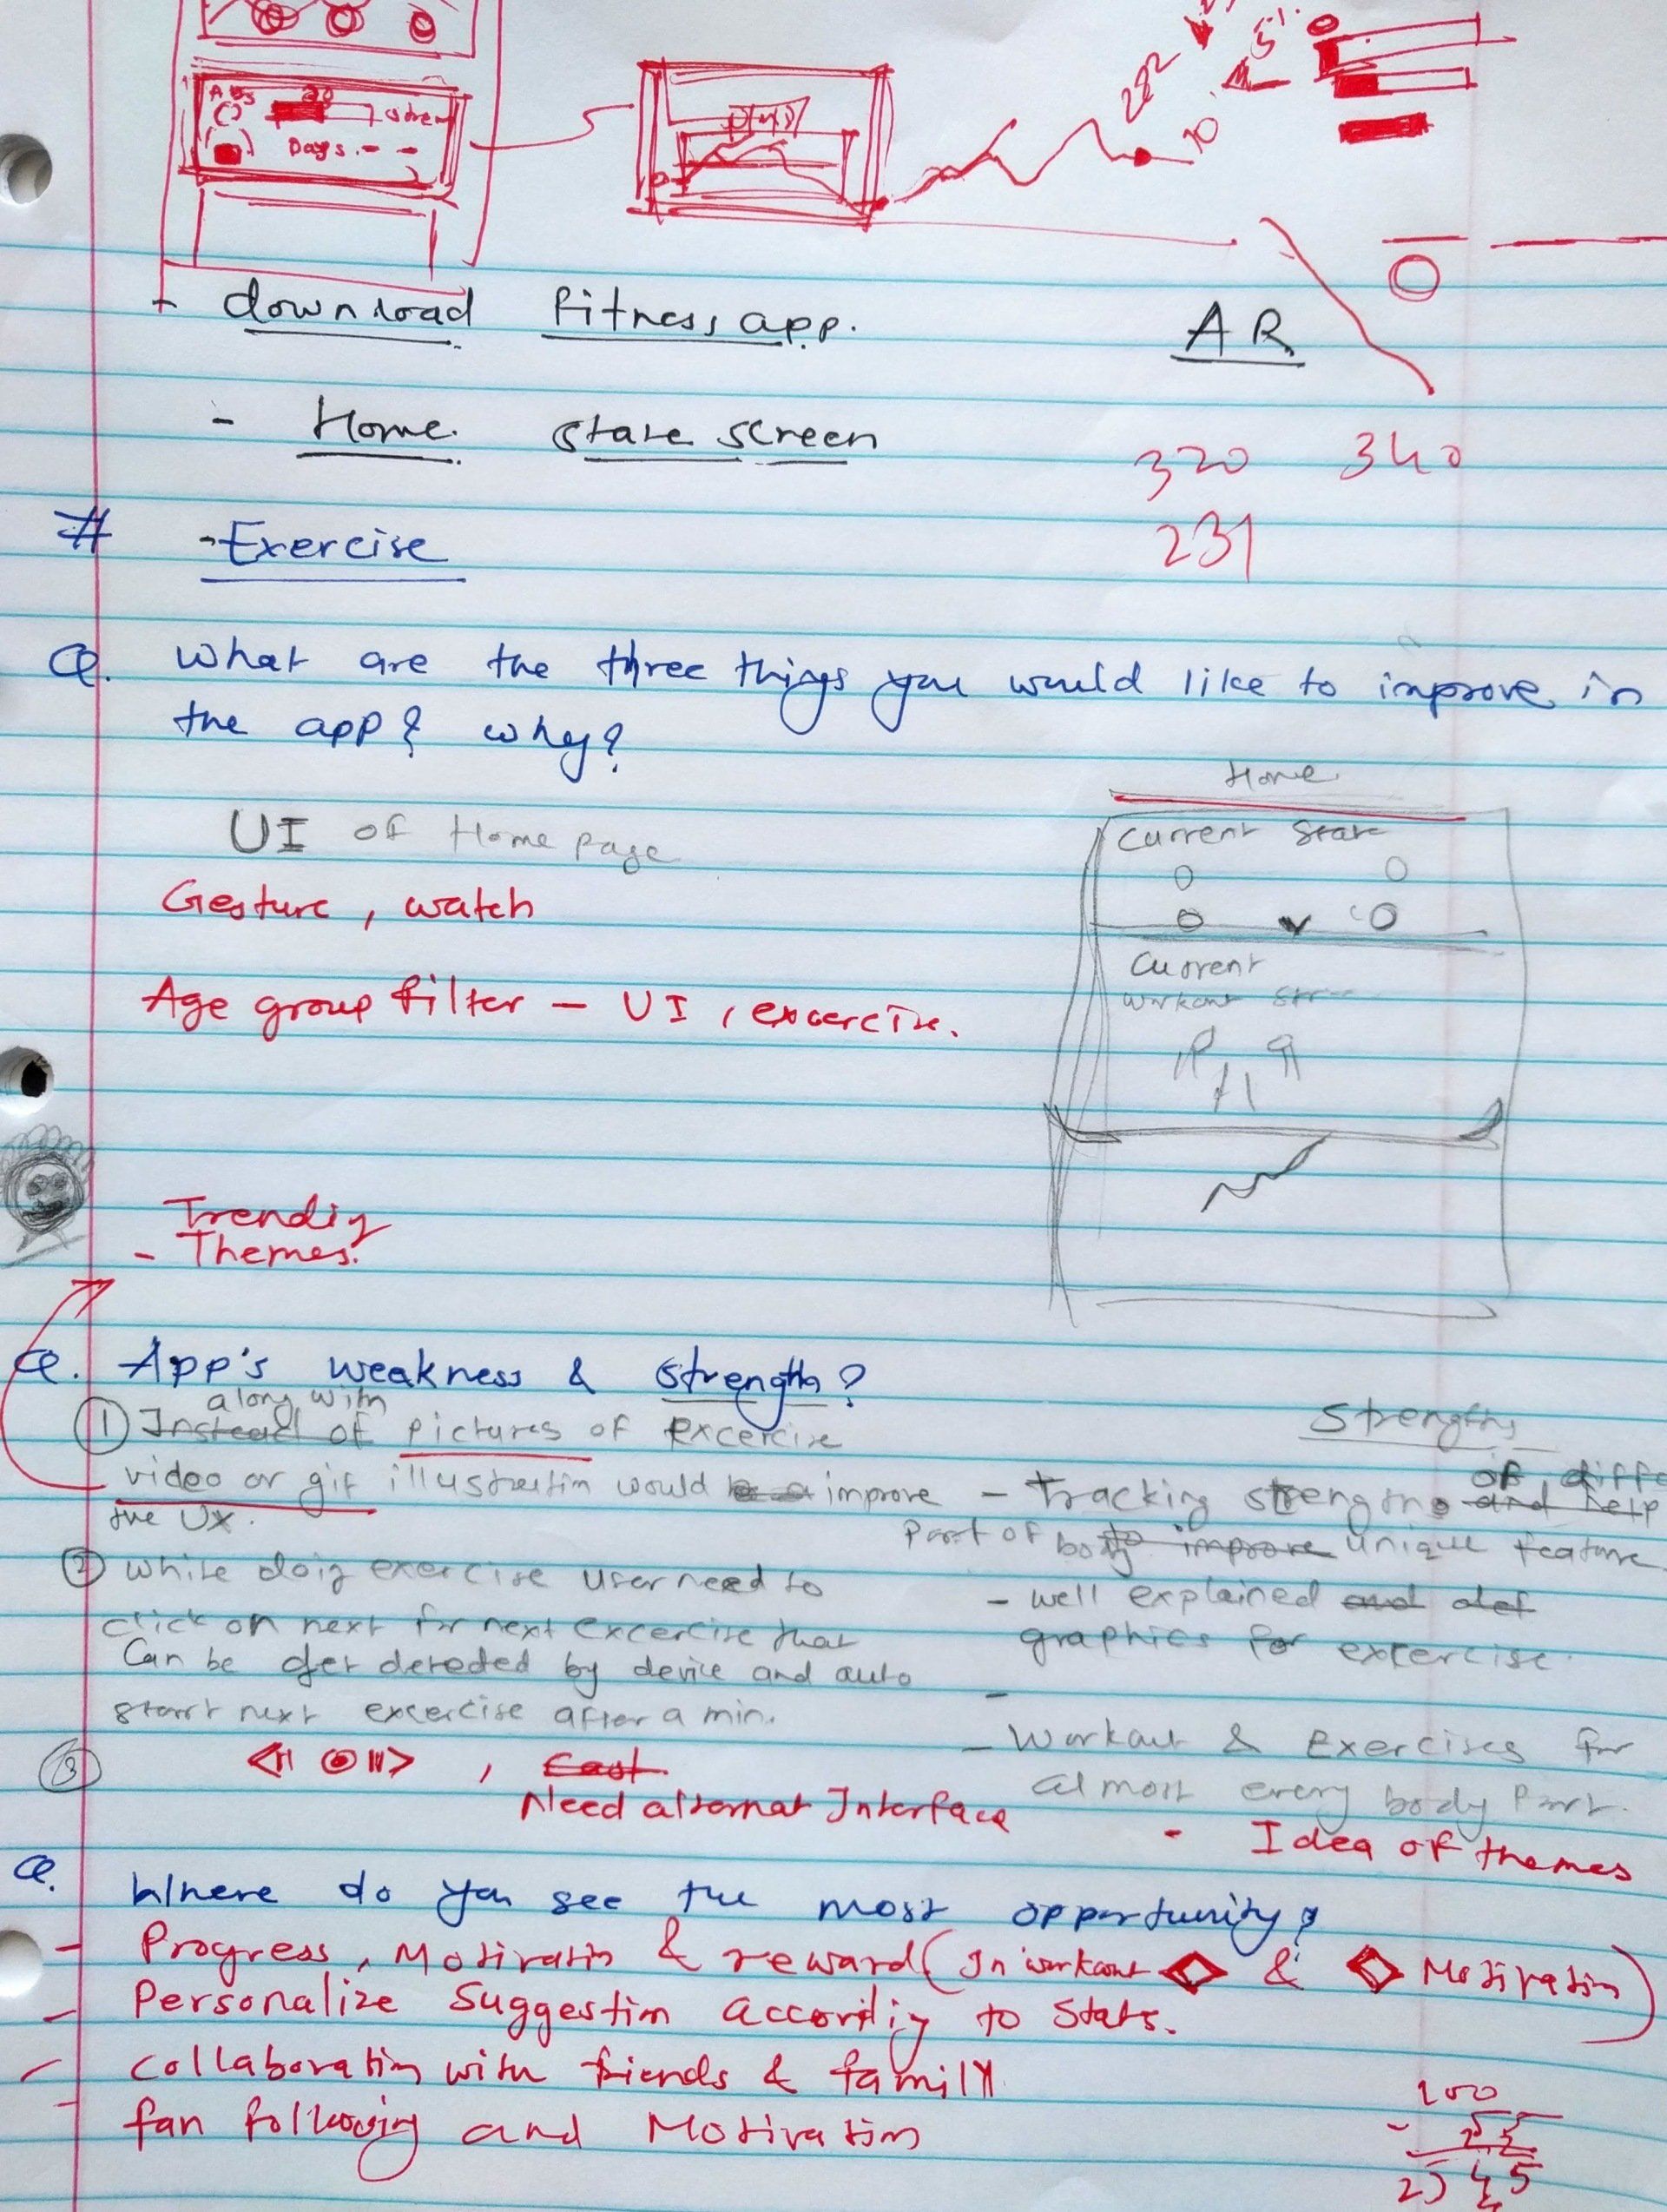 Abs 20
Days.--
282
5%
10
- download fitness app.
AR
- Home state screen
320 340
231
# - Exercise
Q. What are the three things you would like to improve in
the app & why?
Home
UI of Home page
Current State
Gesture, watch
Current
workout
Age group filter - UI, excercise.
Trendig
- Themes.
Q. App's weakness & strength?
along with
① Instead of pictures of excercise
video or gif illustration would be a improve
the UX.
② while doig exercise user need to
click on next for next excercise that
Can be get deteted by device and auto
start next excercise after a min.
③ , Cast.
Need alternat Interface
Strengths
of diffe
- Tracking strengths and help
Part of body to improve unique feature
- well explained and def
graphics for excercise.
-
- Workout & Exercises for
almost every body Part.
- Idea of themes
Q. Where do you see the most opportunity?
- Progress, Motivation & reward (In workout & Motivation)
- Personalize Suggestion accordig to Stats.
- Collaboration with friends & family
- fan following and Motivation
100